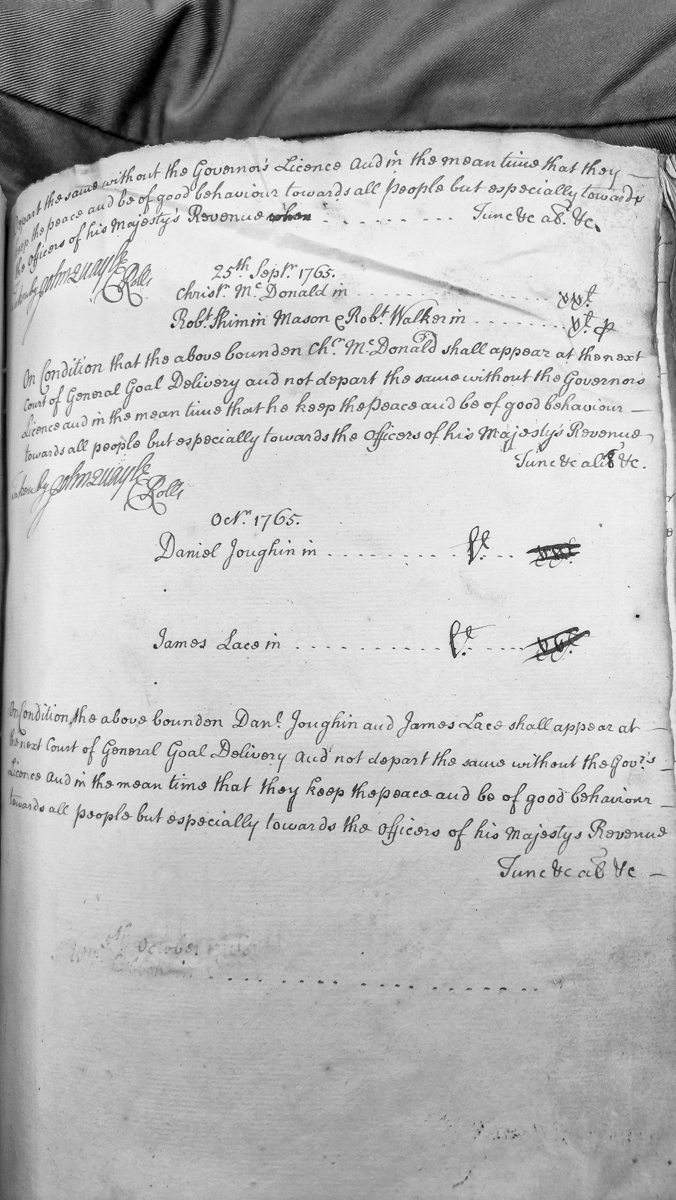 depart the same without the Governor's Licence And in the mean time that they —
keep the peace and be of good behaviour towards all people but especially towards
the officers of his Majesty's Revenue when . . . . . . . . Tunc &c ab. &c.
Taken by John Quayle
C Rolls
25th Septr. 1765.
Christr. McDonald in . . . . . . . . . . . . xx£
Robt. Shimin Mason & Robt. Walker in . . . . . . . . x£ p
On Condition that the above bounden Chr. McDonald shall appear at the next
Court of General Goal Delivery and not depart the same without the Governors
Licence and in the mean time that he keep the Peace and be of good behaviour —
towards all people but especially towards the officers of his Majesty's Revenue
Tunc &c ab &c.
Taken by John Quayle
C Rolls
Octr. 1765.
Daniel Joughin in . . . . . . . . . . . . £
James Lace in . . . . . . . . . . . . £
On Condition, the above bounden Danl. Joughin and James Lace shall appear at —
the next Court of General Goal Delivery And not depart the same without the Govr.'s —
Licence And in the mean time that they keep the peace and be of good behaviour —
towards all people but especially towards the officers of his Majestys Revenue
Tunc &c ab &c —
October